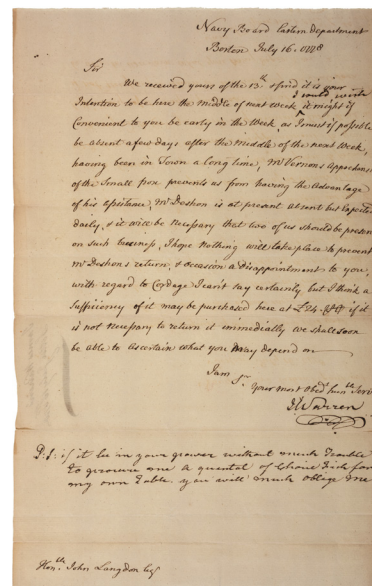 Navy Board Eastern Department
Boston July 16. 1778
Sir
We received yours of the 13th. & find it is your
I could wish
Intention to be here the middle of next week, it might if
Convenient to you be early in the week, as I must if possible
be absent a few days after the middle of the next week,
having been in Town a long time, Mr Vernons Apprehensions
of the Small Pox prevents us from having the Advantage
of his assistance, Mr Deshon is at present absent but expected
daily, & it will be necessary that two of us should be present
on such business, I hope nothing will take place to prevent
Mr Deshons return, & occasion a Disappointment to you,
with regard to Cordage I can't say certainly but I think a
sufficiency of it may be purchased here at £24. if it
is not necessary to return it immediately we shall soon
be able to ascertain what you may depend on
I am Sr.
Your most Obedt. hum ble Servt
J Warren
P.S: if it be in your power without much Trouble
to procure me a quental of Choice Fish for
my own Table. you will much oblige me
Honble. John Langdon Esqr